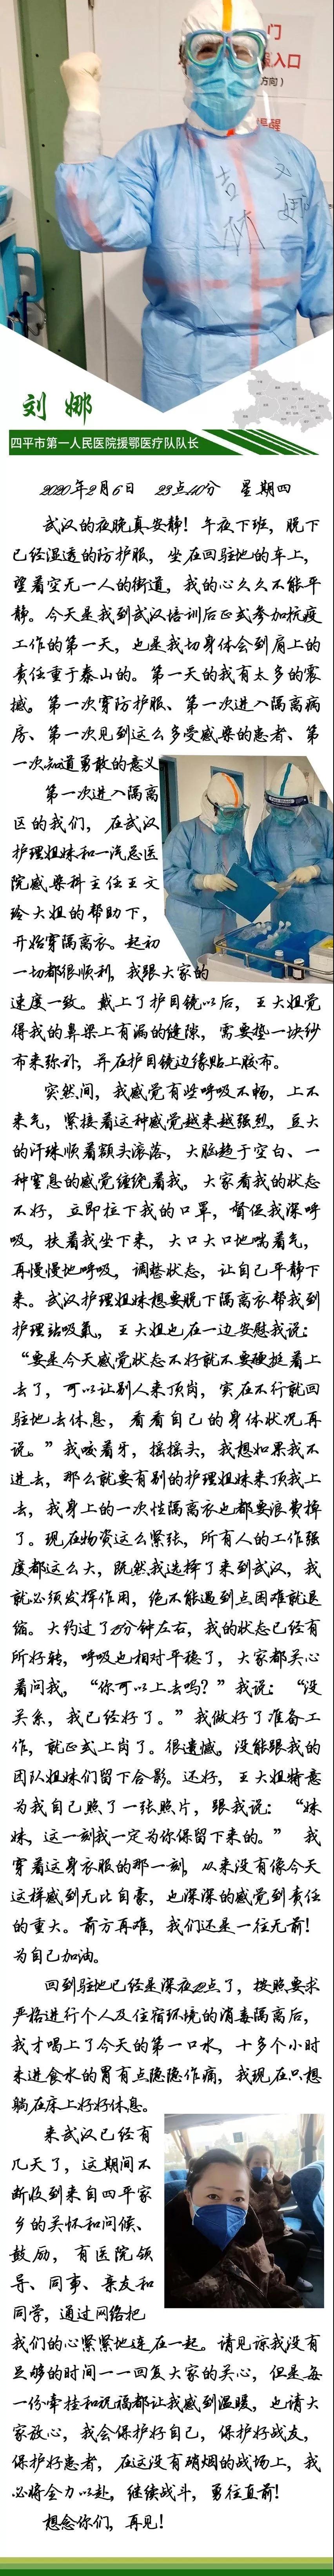 门
入口
方向）
提醒
吉林
刘 娜
四平市第一人民医院援鄂医疗队队长
2020年2月6日 23点40分 星期四
武汉的夜晚真安静！午夜下班，脱下
已经湿透的防护服，坐在回驻地的车上，
望着空无一人的街道，我的心久久不能平
静。今天是我到武汉培训后正式参加抗疫
工作的第一天，也是我切身体会到肩上的
责任重于泰山的。第一天的我有太多的震
撼。第一次穿防护服、第一次进入隔离病
房、第一次见到这么多受感染的患者、第
一次知道勇敢的意义
第一次进入隔离
区的我们，在武汉
护理姐妹和一汽总医
院感染科主任王文
玲大姐的帮助下，
开始穿隔离衣。起初
一切都很顺利，我跟大家的
速度一致。戴上了护目镜以后，王大姐觉
得我的鼻梁上有漏的缝隙，需要垫一块纱
布来弥补，并在护目镜边缘贴上胶布。
突然间，我感觉有些呼吸不畅，上不
来气，紧接着这种感觉越来越强烈，豆大
的汗珠顺着额头滚落，大脑趋于空白、一
种窒息的感觉缠绕着我，大家看我的状态
不好，立即拉下我的口罩，督促我深呼
吸，扶着我坐下来，大口大口地喘着气，
再慢慢地呼吸，调整状态，让自己平静下
来。武汉护理姐妹想要脱下隔离衣帮我到
护理站吸氧，王大姐也在一边安慰我说：
“要是今天感觉状态不好就不要硬挺着上
去了，可以让别人来顶岗，实在不行就回
驻地去休息，看看自己的身体状况再
说。”我咬着牙，摇摇头，我想如果我不
进去，那么就要有别的护理姐妹来顶我上
去，我身上的一次性隔离衣也都要浪费掉
了。现在物资这么紧张，所有人的工作强
度都这么大，既然我选择了来到武汉，我
就必须发挥作用，绝不能遇到点困难就退
缩。大约过了15分钟左右，我的状态已经有
所好转，呼吸也相对平稳了，大家都关心
着问我，“你可以上去吗？”我说：“没
关系，我已经好了。”我做好了准备工
作，就正式上岗了。很遗憾，没能跟我的
团队姐妹们留下合影。还好，王大姐特意
为我自己照了一张照片，跟我说：“妹
妹，这一刻我一定为你保留下来的。” 我
穿着这身衣服的那一刻，从来没有像今天
这样感到无比自豪，也深深的感觉到责任
的重大。前方再难，我们还是一往无前！
为自己加油。
回到驻地已经是深夜22点了，按照要求
严格进行个人及住宿环境的消毒隔离后，
我才喝上了今天的第一口水，十多个小时
未进食水的胃有点隐隐作痛，我现在只想
躺在床上好好休息。
来武汉已经有
几天了，这期间不
断收到来自四平家
乡的关怀和问候、
鼓励，有医院领
导、同事、亲友和
同学，通过网络把
我们的心紧紧地连在一起。请见谅我没有
足够的时间一一回复大家的关心，但是每
一份牵挂和祝福都让我感到温暖，也请大
家放心，我会保护好自己，保护好战友，
保护好患者，在这没有硝烟的战场上，我
必将全力以赴，继续战斗，勇往直前！
想念你们，再见！